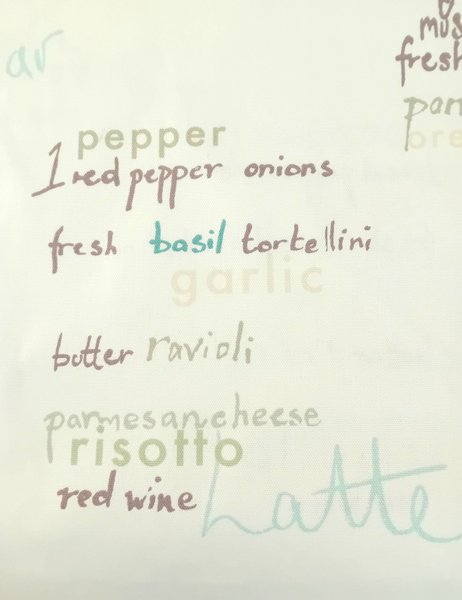 fresh
pepper
1 red pepper onions
fresh basil tortellini
garlic
butter ravioli
parmesan cheese
risotto
red wine
Latte